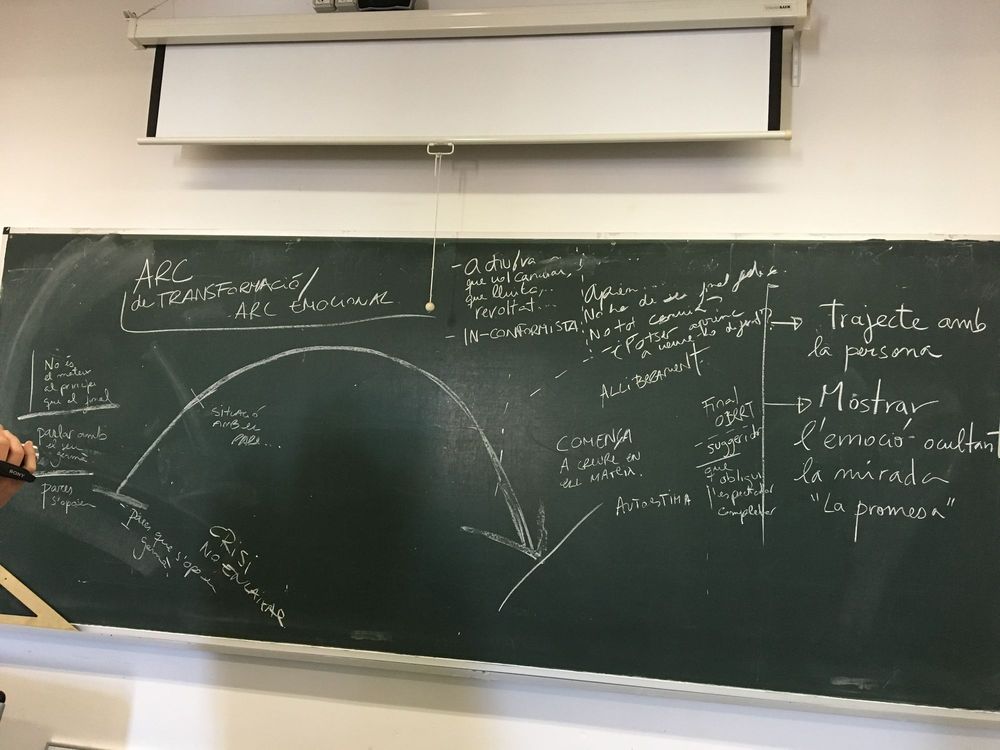 ARC
de TRANSFORMACIÓ/
ARC EMOCIONAL
- activ/va
que vol canviar,
que lluita,...
revoltat...
- IN-CONFORMISTA
Aprèn...
No ha de ser final
No tot
- ¿Potser
a veure-ho
ALLIBERAMENT
No és
el mateix
al principi
que el final
parlar amb
el seu
germà
pares
s'oposen
SITUACIÓ
AMB EL
PARE...
Pares que s'oposen
germà!
CRISI
NO ENCAIXAR
COMENÇA
A CREURE EN
ELL MATEIX.
AUTOESTIMA
Final
OBERT
- suggeridor
que
obligui
l'espectador
completar
Trajecte amb
la persona
Mostrar
l'emoció ocultant
la mirada
"La promesa"
SONY